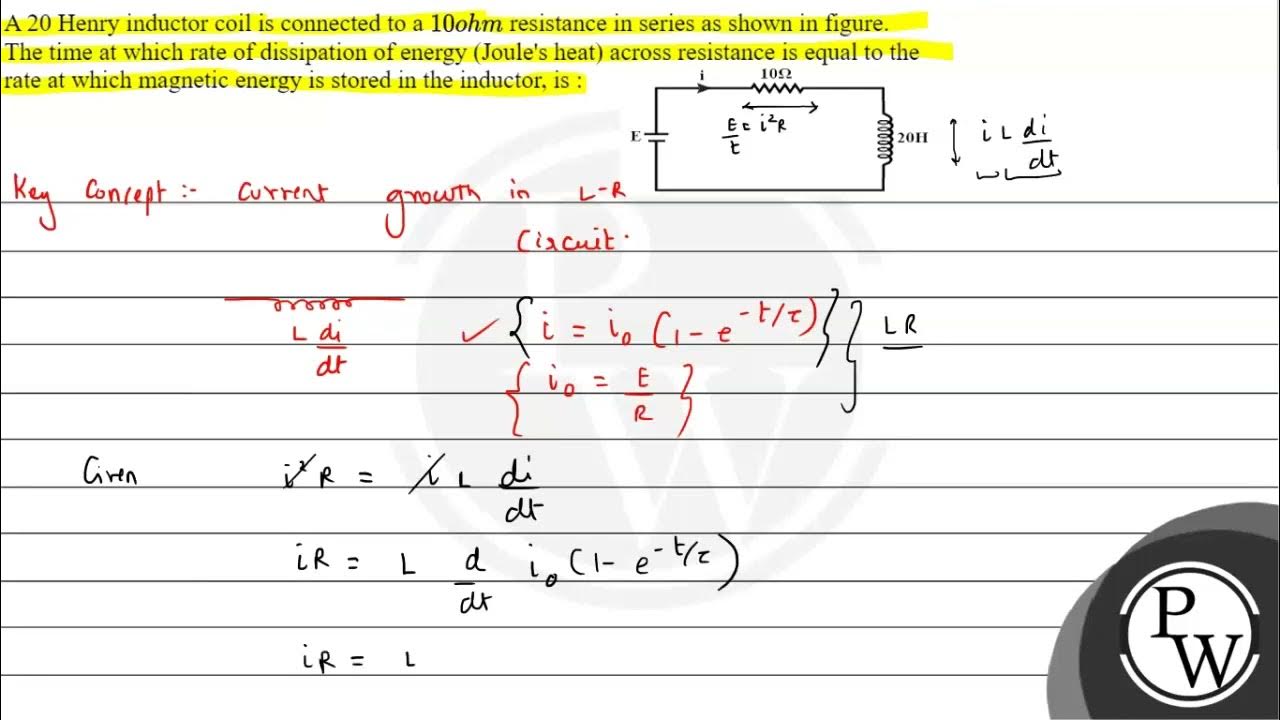 A 20 Henry inductor coil is connected to a 10ohm resistance in series as shown in figure.
The time at which rate of dissipation of energy (Joule's heat) across resistance is equal to the
rate at which magnetic energy is stored in the inductor, is :
i 10Ω
E 20H
E/t = i²R
i L di/dt
Key Concept :- Current growth in L-R
Circuit.
L di/dt
✓ { i = i₀ (1 - e^-t/τ) } } LR
{ i₀ = E/R }
Given i²R = i L di/dt
iR = L d/dt i₀ (1 - e^-t/τ)
iR = L
P
W
P
W